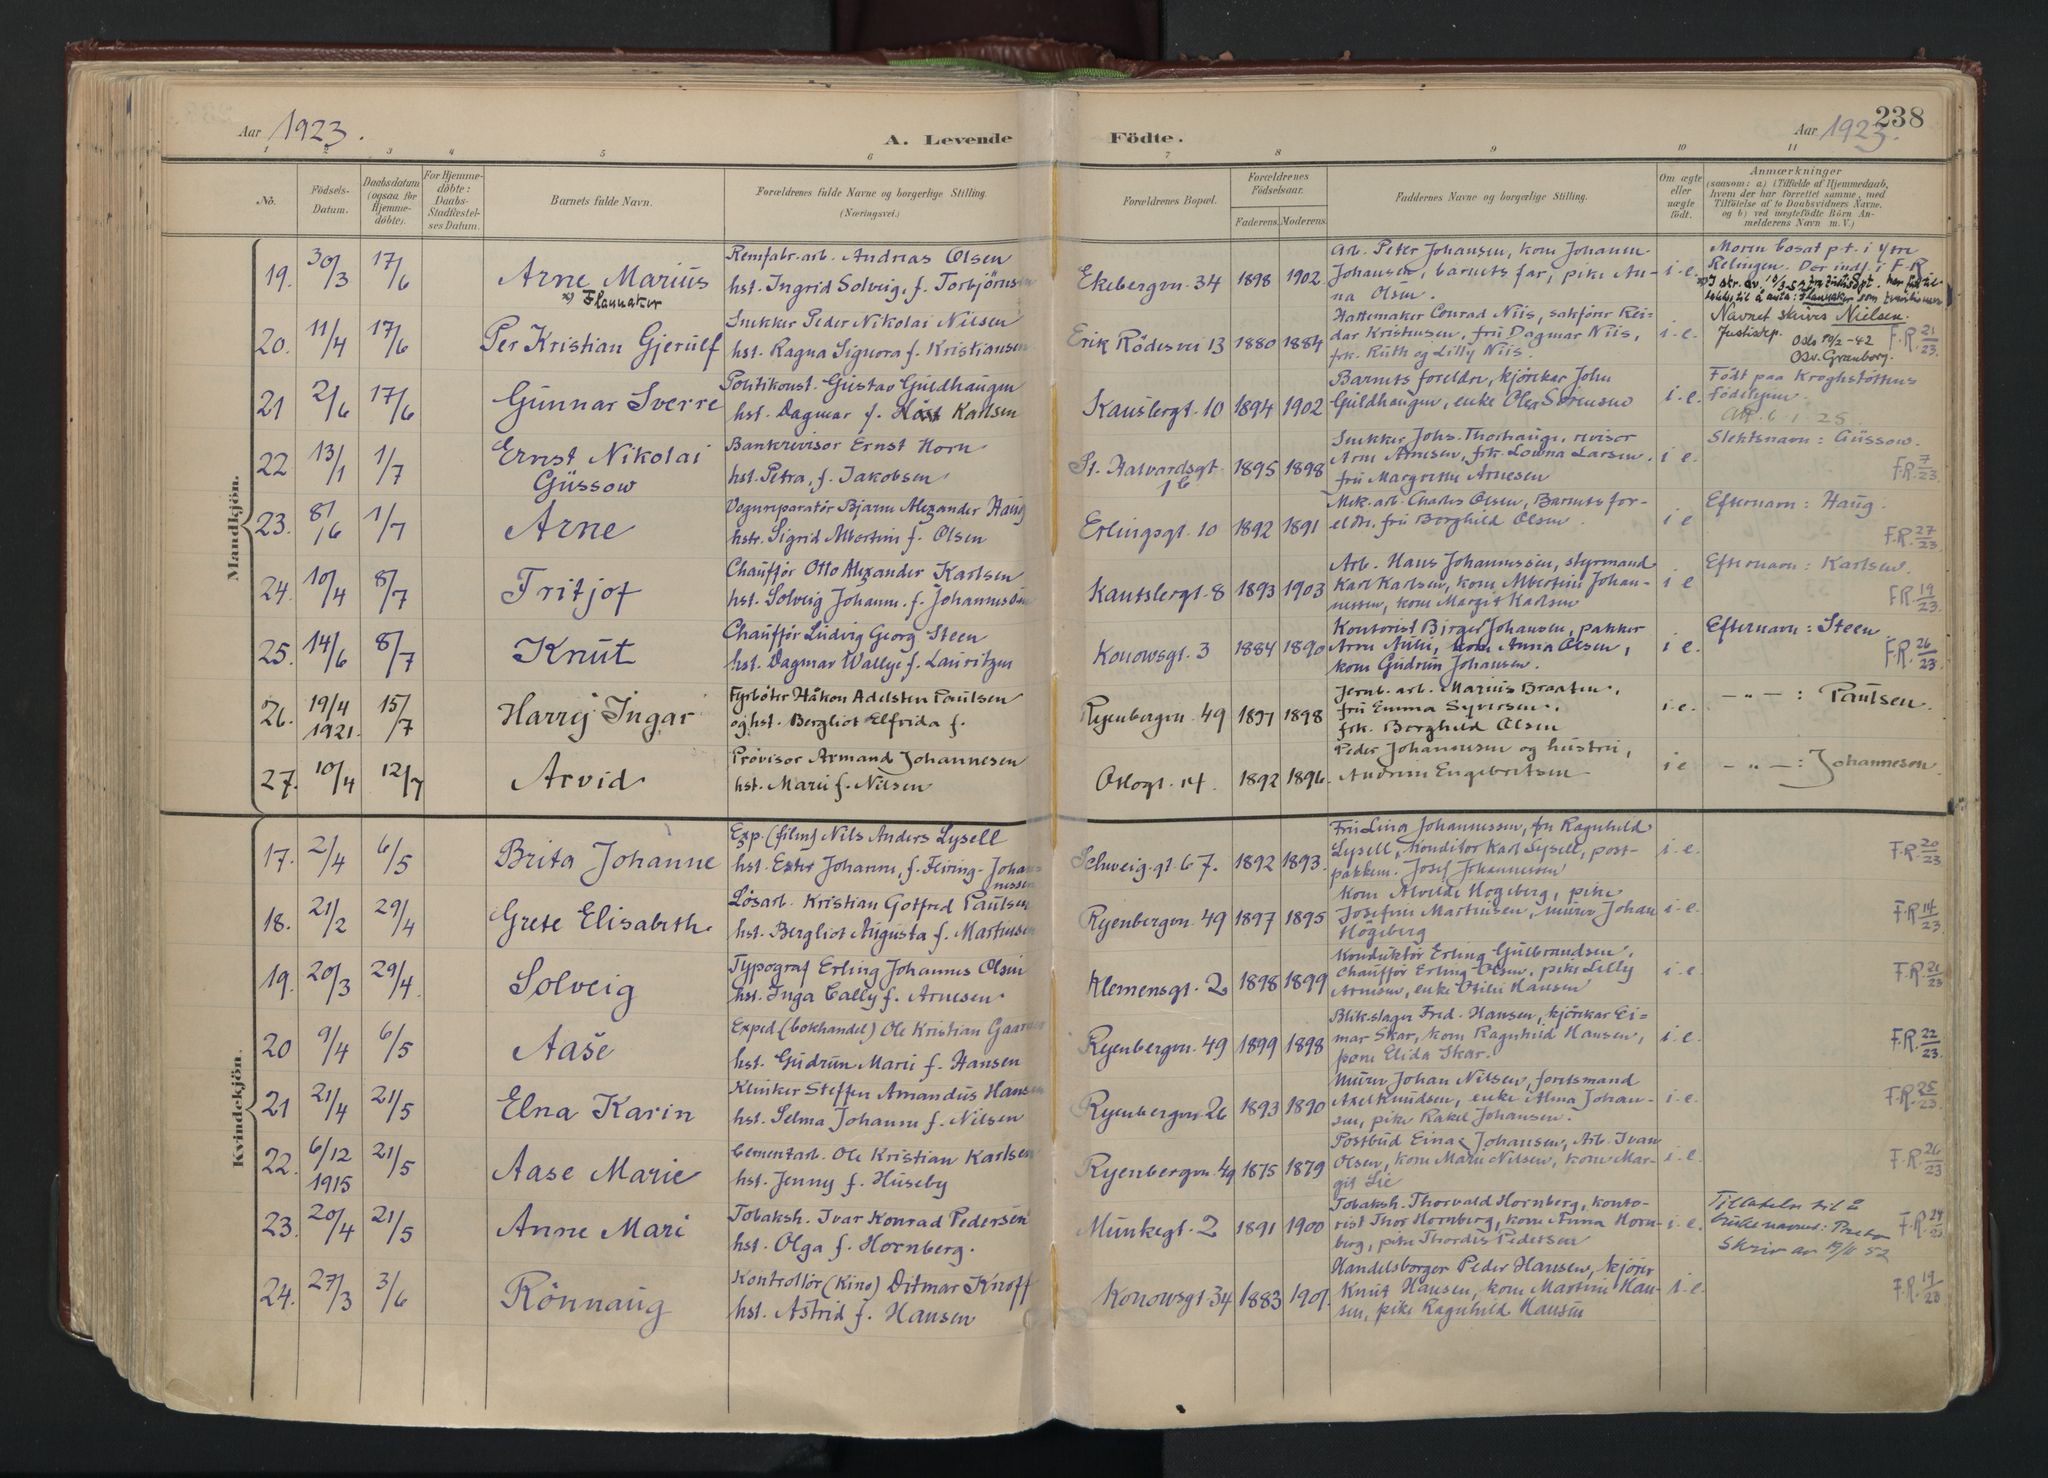 238
Aar 1923.
A. Levende Födte.
Aar 1923.
1 2 3 4 5 6 7 8 9 10 11
No.
Födsels-Datum.
Daabsdatum (ogsaa for Hjemmedöbte).
For Hjemmedöbte: Daabs-Stadfæstelses Datum.
Barnets fulde Navn.
Forældrenes fulde Navne og borgerlige Stilling.
(Næringsvei.)
Forældrenes Bopæl.
Forældrenes Födselsaar.
Faderens. Moderens.
Faddernes Navne og borgerlige Stilling.
Om ægte eller uægte födt.
Anmærkninger
(saasom: a) (Tilfælde af Hjemmedaab, hvem der har forrettet samme, med Tilföielse af to Daabsvidners Navne, og b) ved uægtefödte Börn Anmelderens Navn m. V.)
Mandkjön.
19. 30/3 17/6 Arne Marius
x) Flannaker
Remfabr.arb. Andreas Olsen
hst. Ingrid Solveig, f. Torbjörnsen
Ekebergvn. 34 1898 1902
Arb. Peter Johansen, kone Johanne
Johansen, barnets far, pike An-
na Olsen.
i.e.
Moren bosat p.t. i
Relingen. Der indf. i F.R.
20. 11/4 17/6 Per Kristian Gjerulf
Snekker Peder Nikolai Nilsen
hst. Ragna Signora f. Kristiansen
Erik Rödesvei 13 1880 1884
Hattemaker Conrad Niis, sakförer Rei-
dar Kristensen, frü Dagmar Niis,
frk. Ruth og Lilly Niis.
i.e.
Navnet skives Nielsen.
Justisdep. Oslo 10/2-42
Osv. Granborg.
F.R. 21/23
21 2/6 17/6 Gunnar Sverre
Politikonst. Gustav Guldhaugen
hst. Dagmar f. Karlsen
Kanslergt. 10 1894 1902
Barnets foreldre, kjörekar John
Guldhaugen, enke Olga Sörensen
i.e.
Födt paa Kroghstöttens
födehjem.
6.1.25
22 13/1 1/7 Ernst Nikolai
Güssow
Bankrevisor Ernst Horn
hst. Petra, f. Jakobsen
St. Halvardsgt. 1b 1895 1898
Snekker Johs. Thorhauge, revisor
Arne Arnesen, frk. Lovna Larsen,
frü Margrethe Arnesen
i e.
Slektsnavn: Güssow.
F.R. 7/23
23. 8/6 1/7 Arne
Vognreparatör Bjarne Alexander Haug
hstr. Sigrid Albertine f. Olsen
Erlingsgt. 10 1892 1891
Mek. arb. Charles Olsen, Barnets for-
eldre, frü Borghild Olsen.
i e
Efternavn: Haug.
F.R. 27/23
24. 10/4 8/7 Fritjof
Chauffför Otto Alexander Karlsen
hst. Solveig Johanne f. Johannessen
Kantslergt. 8 1893 1903
Arb. Hans Johannessen, styrmand
Karl Karlsen, kone Albertine Johan-
nessen, kone Margit Karlsen
i e
Efternavn: Karlsen.
F.R. 19/23
25. 14/6 8/7 Knut
Chaufför Ludvig Georg Steen
hst. Dagmar Wallye f. Lauritzen
Konowsgt. 3 1884 1890
Kontorist Birger Johansen, pakker
Arne Aulie, kone Anna Olsen,
kone Gudrun Johansen.
i e.
Efternavn: Steen
F.R. 26/23
26. 19/4 1921. 15/7 Harry Ingar
Fyrböter Håkon Adelsten Paulsen
og hst. Bergliot Elfrida f.
Ryenbergvn. 49 1897 1898
Jernb. arb. Marius Braaten,
frü Emma Syversen,
frk. Borghild Olsen
i.e.
— „ — : Paulsen.
27. 10/4 12/7 Arvid
Provisor Armand Johannesen
hst. Marie f. Nilsen
Oslogt. 14. 1892 1896
Peder Johannesen og hustru,
Andrine Engebretsen
i e
— „ — : Johannesen.
Kvindekjön.
17. 2/4 6/5 Brita Johanne
Exp. (film) Nils Anders Lysell
hst. Ester Johanne, f. Feiring-Johannessen
Schweig.gt 67. 1892 1893
Frü Lina Johannessen, frü Ragnhild
Lysell, konditor Karl Lysell, post-
pakkem. Josef Johannessen
i.e.
F.R. 20/23
18. 21/2 29/4 Grete Elisabeth
Lösarb. Kristian Gotfred Paulsen
hst. Bergliot Augusta f. Martinsen
Ryenbergvn. 49 1897 1895
Kone Alvilde Hogeberg, pike
Josefine Martinsen, murer Johan
Hogeberg
i.e.
F.R. 14/23
19. 20/3 29/4. Solveig
Typograf Erling Johannes Olsen
hst. Inga Cally f. Arnesen.
Klemensgt. 2 1898 1899
Konduktör Erling Gulbrandsen,
Chaufför Erling Olsen, pike Lilly
Arnesen, enke Otilie Hansen
i.e.
F.R. 21/23
20 9/4 6/5 Aase
Exped (bokhandel) Ole Kristian Gaarder
hst. Gudrun Marie f. Hansen
Ryenbergvn. 49 1899 1898
Blikslager Fred. Hansen, kjörekar Ei-
mar Skar, kone Ragnhild Hansen,
kone Elida Skar.
i.e.
F.R. 22/23
21 21/4 21/5 Elna Karin
Klinker Steffen Amandus Hansen
hst. Selma Johanne f. Nilsen
Ryenbergvn 26 1893 1890
Murer Johan Nilsen, formand
Axel Knudsen, enke Alma Johan-
sen, pike Rakel Johansen.
i.e.
F.R. 25/23
22. 6/12 1915 21/5 Aase Marie
Cementarb. Ole Kristian Karlsen
hst. Jenny f. Huseby
Ryenbergvn 49 1875 1879
Postbud Einar Johansen, Arb. Ivan
Olsen, kone Marie Nilsen, kone Mar-
git Lie
i.e.
F.R. 26/23
23. 20/4 21/5 Anne Mari
Tobaksh. Ivar Konrad Pedersen
hst. Olga f. Hornberg.
Munkegt. 2 1891 1900
Tobaksh. Thorvald Hornberg, konto-
rist Thor Hornberg, kone Anna Horn-
berg, pike Thordis Pedersen
i.e.
Tillatelse til å
bruke navnet:
Skriv av 19/11 52
F.R. 24/23
24. 27/3 3/6 Rönnaug
Kontrollör (Kino) Ditmar Knoff
hst. Astrid f. Hansen
Konowsgt 34 1883 1901.
Handelsborger Peder Hansen, kjörer
Knut Hansen, kone Martine Han-
sen, pike Ragnhild Hansen
i.e.
F.R. 19/23